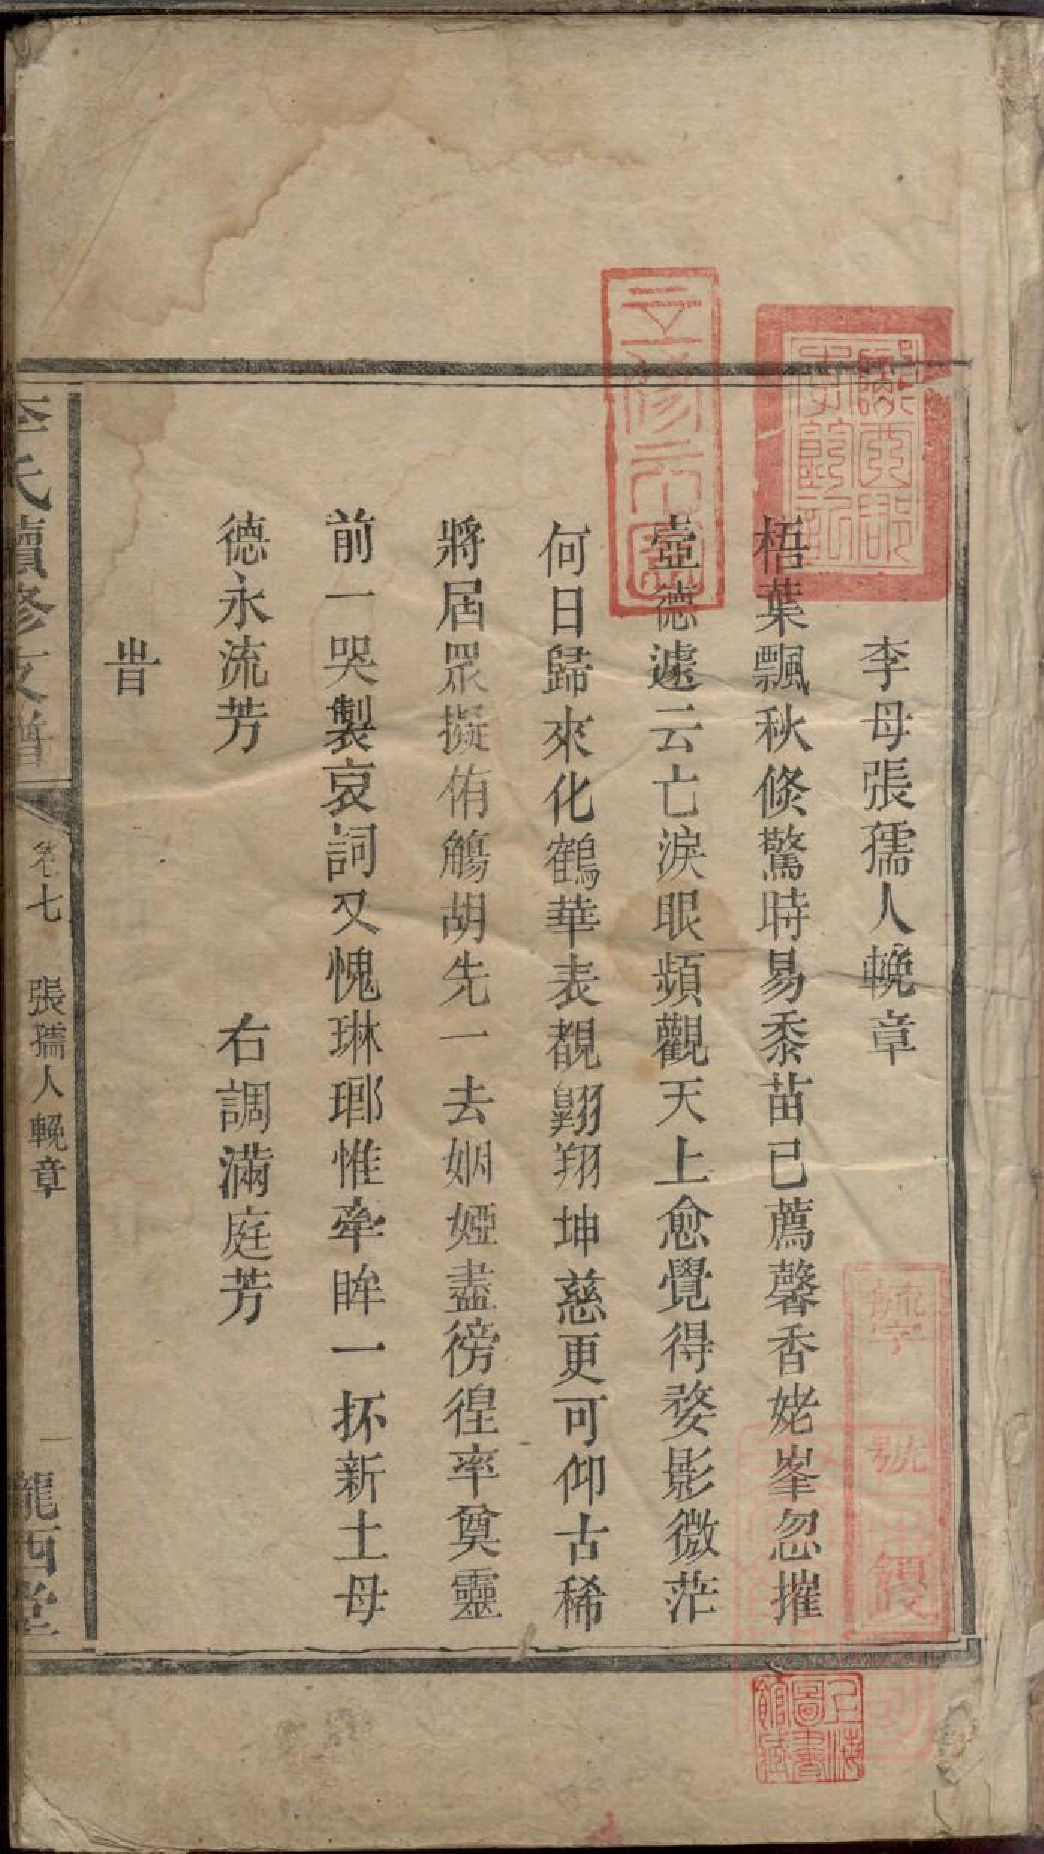 李母張孺人輓章
梧葉飄秋倐驚時易黍苗已薦馨香姥峯忽摧
壼德遽云亡淚眼頻觀天上愈覺得婺影微茫
何日歸來化鶴華表覩翺翔坤慈更可仰古稀
將屆眾擬侑觴胡先一去姻婭盡徬徨率奠靈
前一哭製哀詞又愧琳瑯惟牽眸一抔新土母
德永流芳　右調滿庭芳
旹
李氏續修支譜
卷七　張孺人輓章　一
隴西堂
隴西郡
立修
號
上海圖書館藏